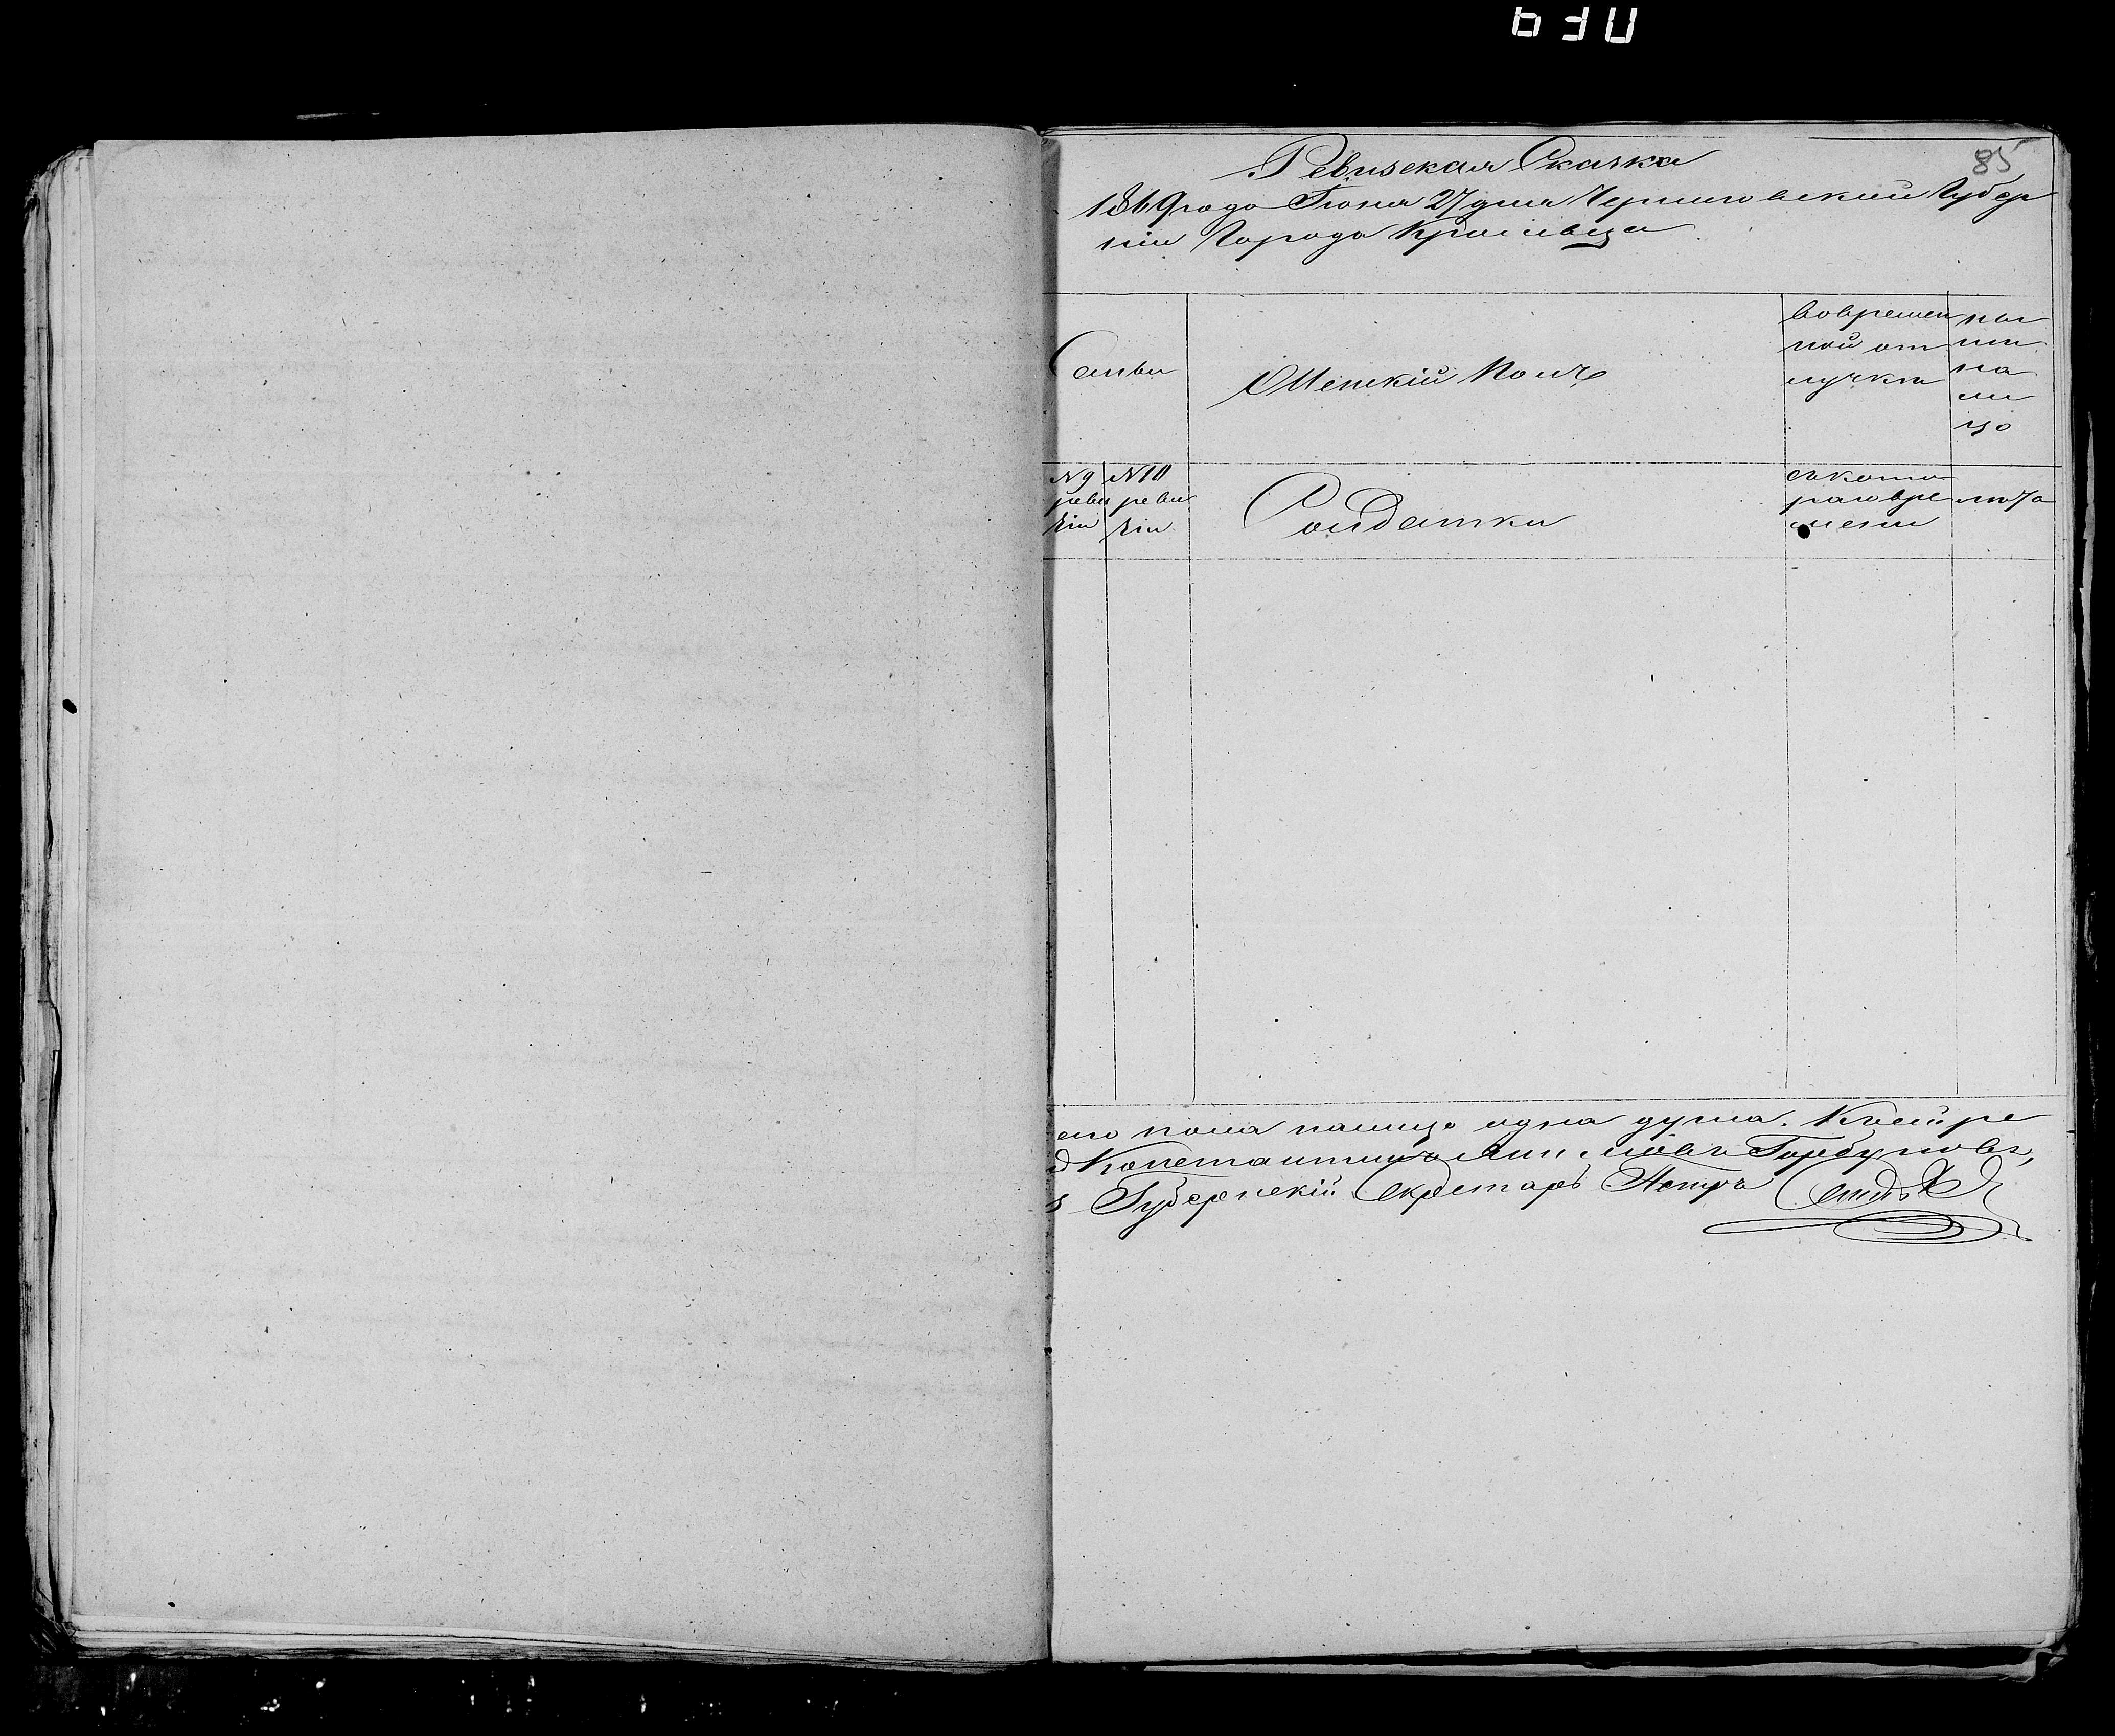 85
Ревизская Сказка
1869 года Июня 27 дня Черниговский Губер
ніи Города Кролевца
Семьи
Женскій Полъ
вовремен
ной от
лучкѣ
ны
ни
на
ли
цо
N 9
реви
зіи
N 10
реви
зіи
Солдатки
съ кото
раго вре
мени
лѣта
его пола налицо одна душа. К сей ре
Константинъ Горбуновъ,
Губернскій Секретарь Петръ